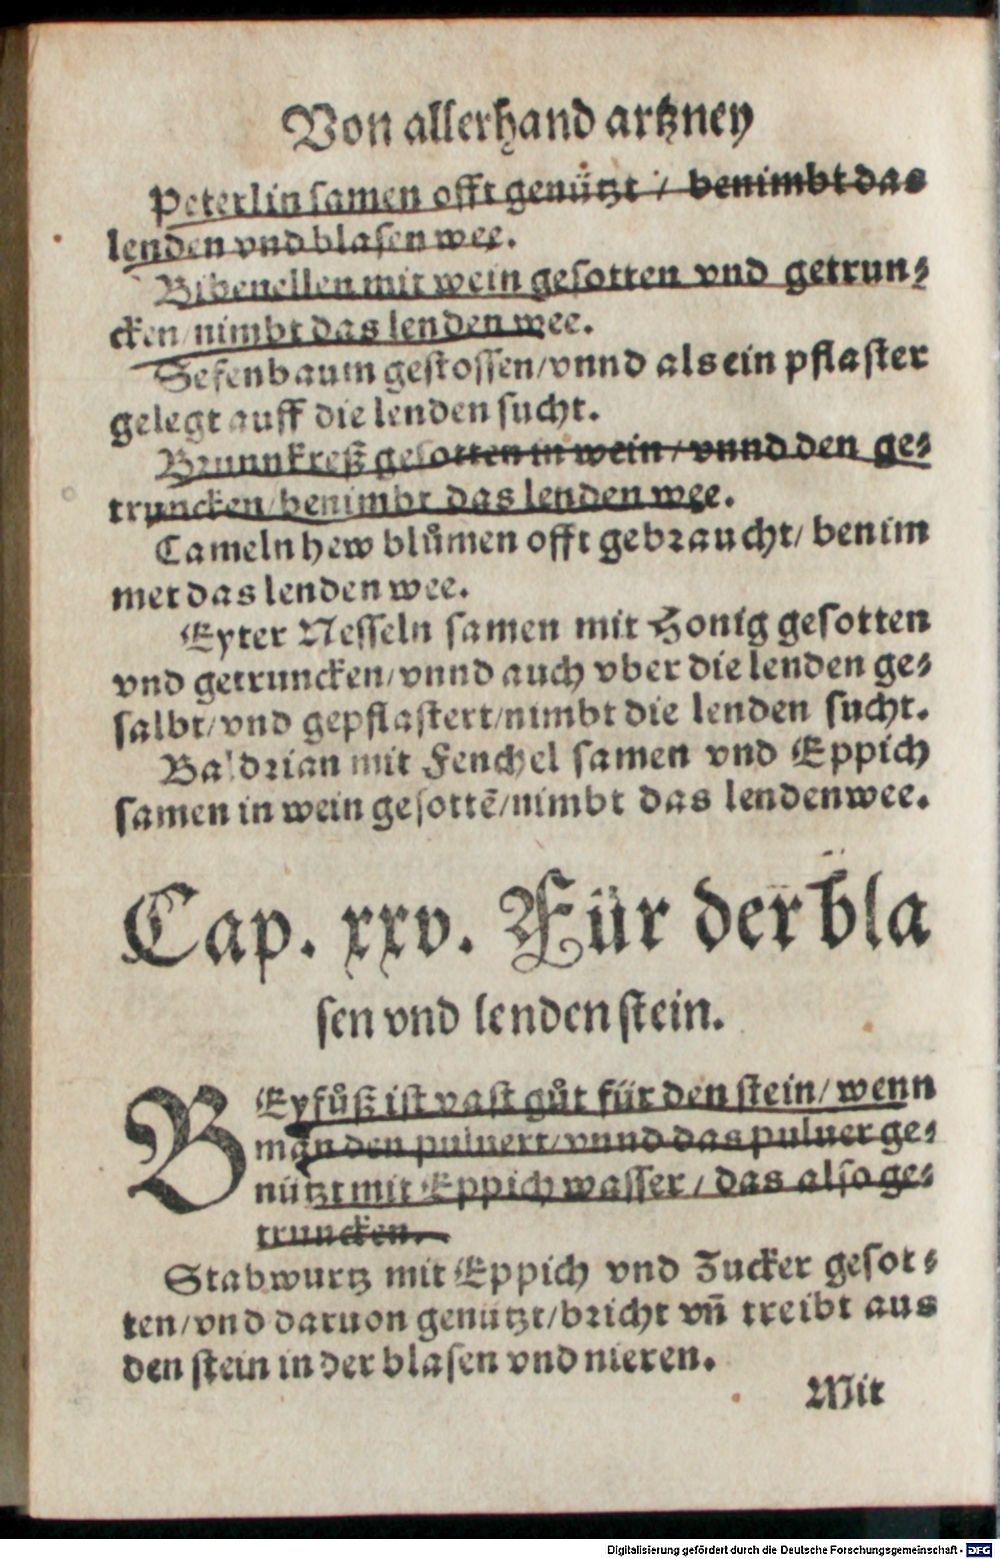 Von allerhand artzney
Peterlin samen offt genützt / benimbt das
lenden vnd blasen wee.
Bibenellen mit wein gesotten vnd getrun⸗
cken/nimbt das lenden wee.
Sefenbaum gestossen/vnnd als ein pflaster
gelegt auff die lenden sucht.
Brunnkreß gesotten in wein/vnnd den ge⸗
truncken/benimbt das lenden wee.
Cameln hew blůmen offt gebraucht/ benim
met das lenden wee.
Eyter Nesseln samen mit Honig gesotten
vnd getruncken/vnnd auch vber die lenden ge⸗
salbt/vnd gepflastert/nimbt die lenden sucht.
Baldrian mit Fenchel samen vnd Eppich
samen in wein gesottē/nimbt das lendenwee.
Cap. xxv. Für der bla
sen vnd lenden stein.
BEyfůß ist vast gůt für den stein/ wenn
man den puluert/vnnd das puluer ge⸗
nützt mit Eppich wasser / das also ge⸗
truncken.
Stabwurtz mit Eppich vnd Zucker gesot⸗
ten/vnd daruon genützt/bricht vn̄ treibt aus
den stein in der blasen vnd nieren.
Mit
Digitalisierung gefördert durch die Deutsche Forschungsgemeinschaft - DFG